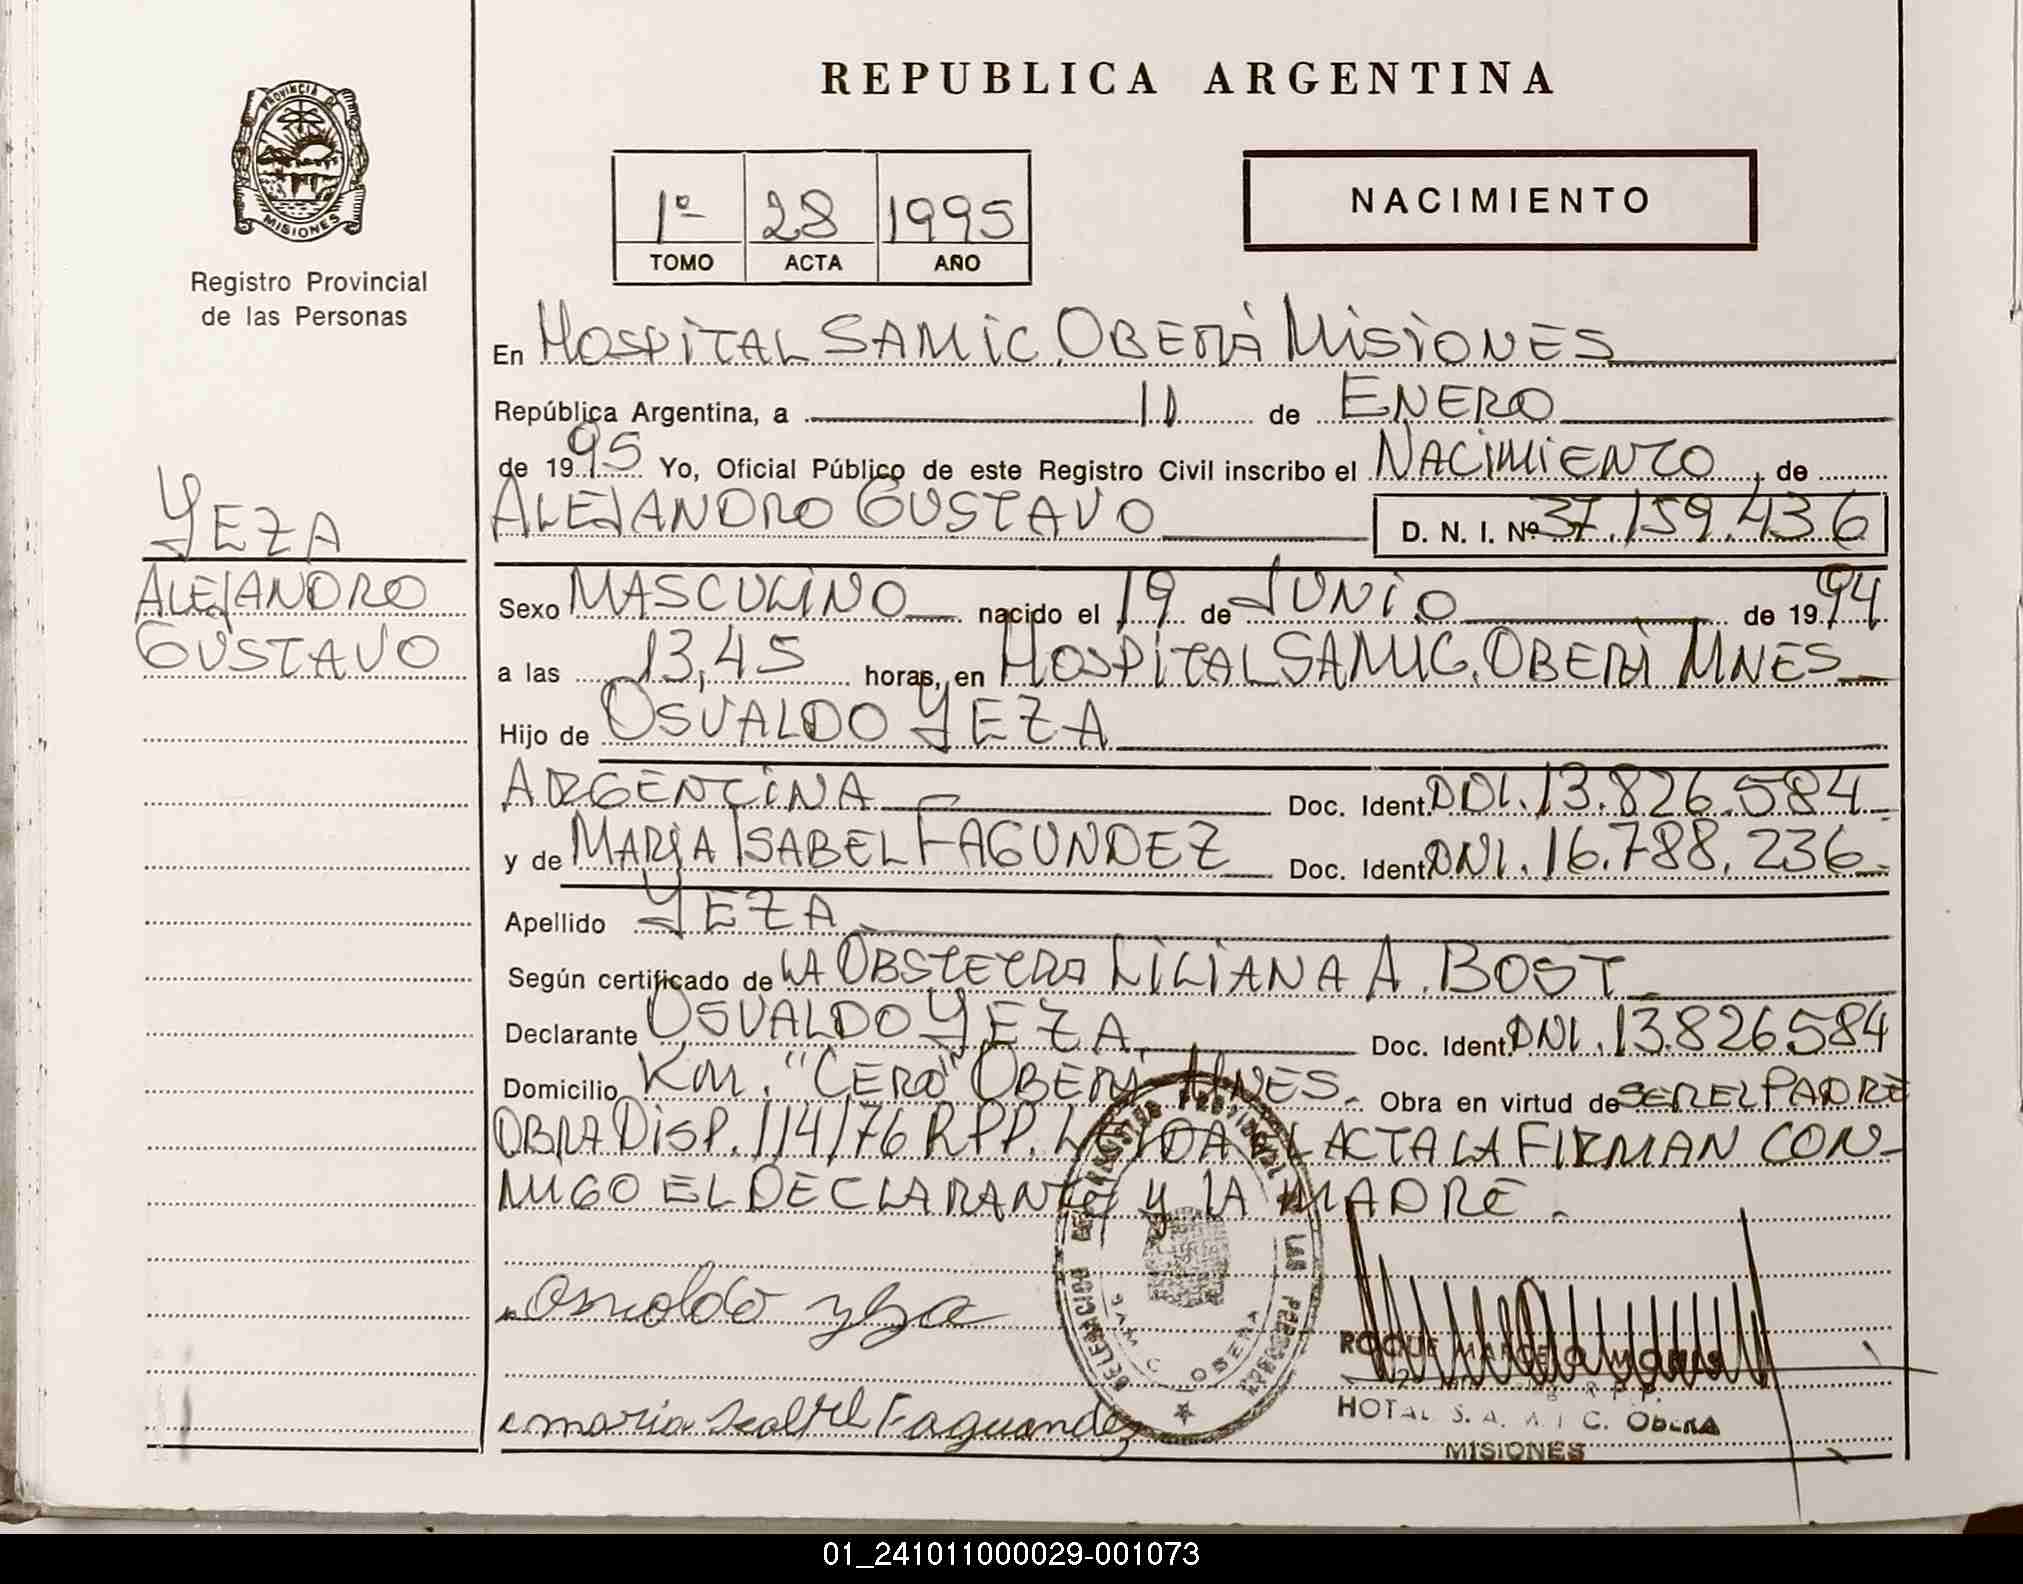 REPUBLICA ARGENTINA
PROVINCIA DE
MISIONES
Registro Provincial
de las Personas
1º 28 1995
TOMO ACTA AÑO
NACIMIENTO
En HOSPITAL SAMIC. OBERÁ MISIONES
República Argentina, a 11 de ENERO
de 1995 Yo, Oficial Público de este Registro Civil inscribo el NACIMIENTO, de
ALEJANDRO GUSTAVO D. N. I. Nº 37.159.436
YEZA
ALEJANDRO
GUSTAVO
Sexo MASCULINO nacido el 19 de JUNIO de 1994
a las 13,45 horas, en HOSPITAL SAMIC. OBERÁ MNES
Hijo de OSVALDO YEZA
ARGENTINA Doc. Ident. DNI. 13.826.584
y de MARIA ISABEL FAGUNDEZ Doc. Ident. DNI. 16.788.236
Apellido YEZA
Según certificado de LA OBSTETRA LILIANA A. BOST
Declarante OSVALDO YEZA Doc. Ident. DNI. 13.826.584
Domicilio KM. "CERO" OBERÁ MNES. Obra en virtud de SER EL PADRE
OBRA DISP. 114/76 R.P.P. LEIDA EL ACTA LA FIRMAN CON-
MIGO EL DECLARANTE Y LA MADRE.
DELEGACION REGISTRO PROVINCIAL DE LAS PERSONAS
SAMIC OBERA
Osvaldo Yeza
maria Isabel Faguandez
ROQUE
R.P.P.
S.A.M.I.C. OBERA
MISIONES
01_241011000029-001073